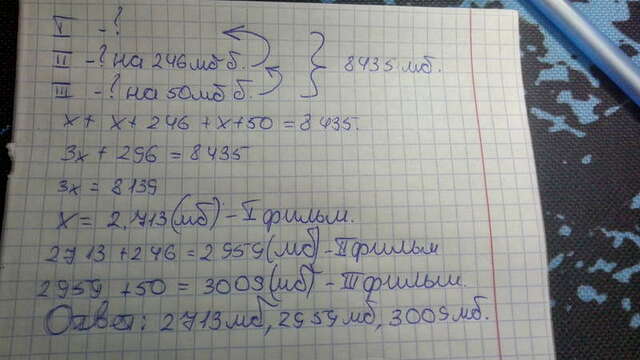 I - ?
II - ? на 246 мб б.
III - ? на 50 мб б.
} 8435 мб.
x + x + 246 + x + 50 = 8435.
3x + 296 = 8435
3x = 8139
x = 2.713 (мб) - I фильм.
2713 + 246 = 2959 (мб) - II фильм
2959 + 50 = 3009 (мб) - III фильм.
Ответ: 2713 мб, 2959 мб, 3009 мб.